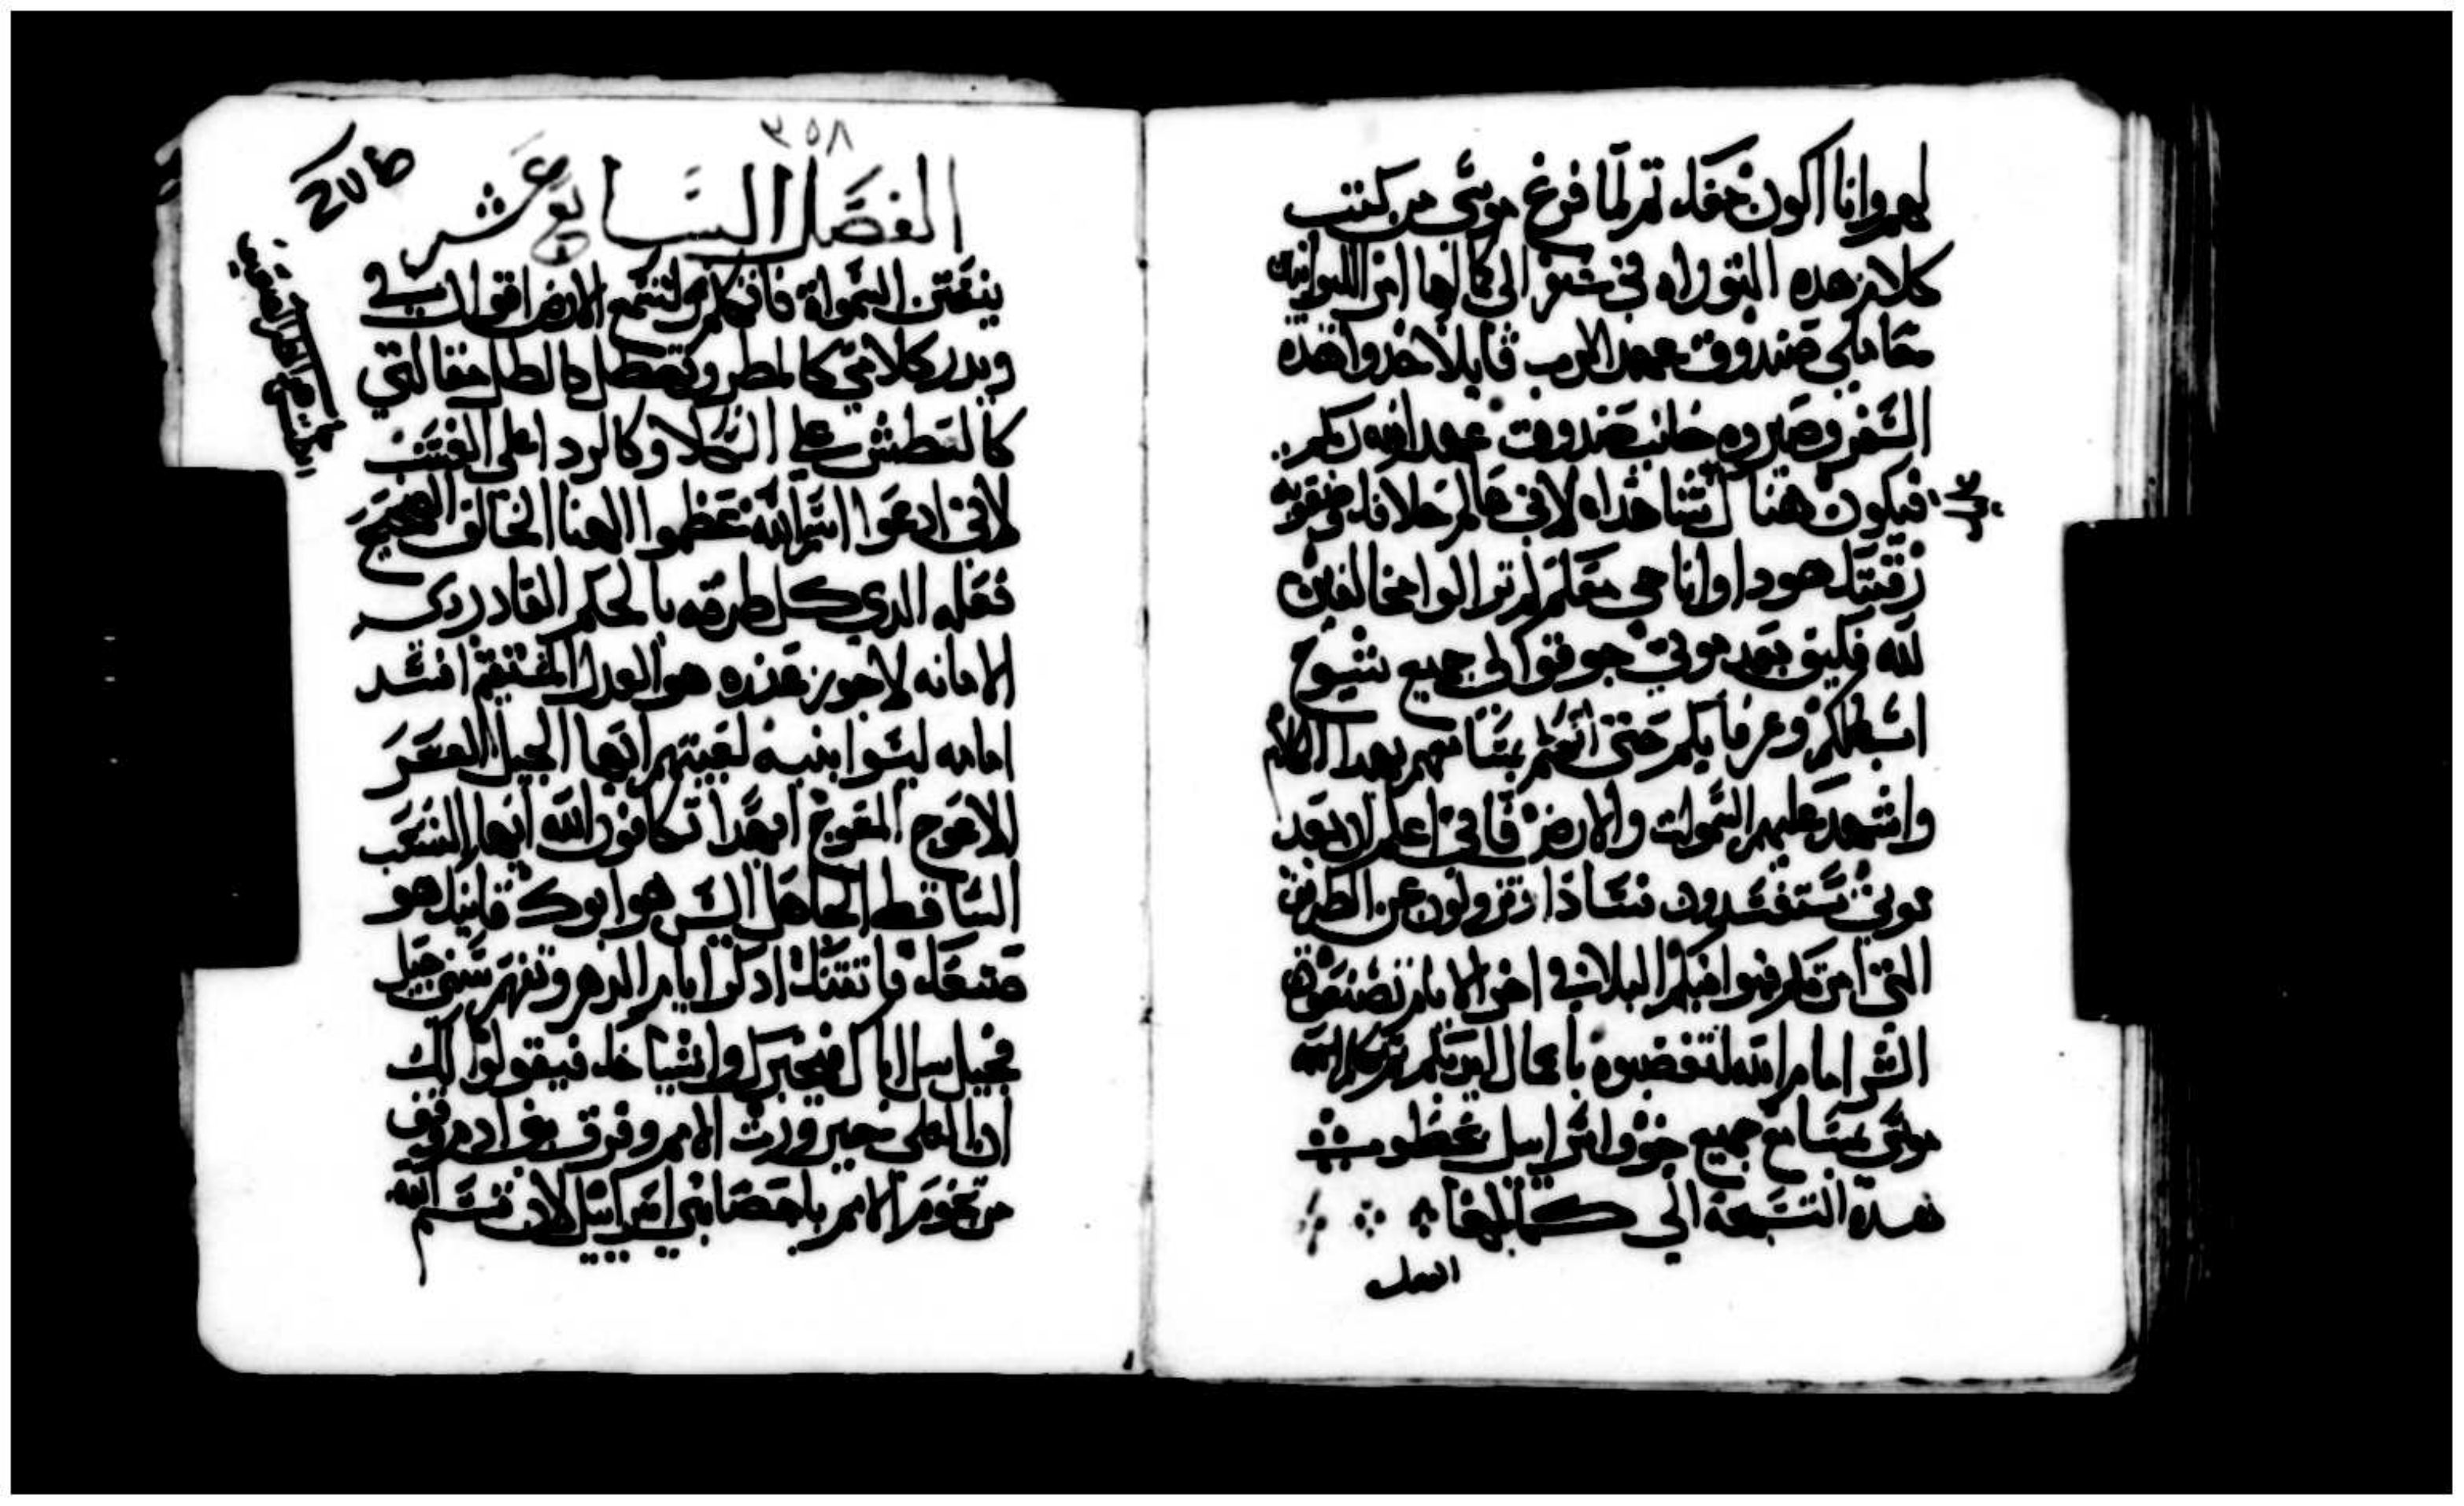 لهم وانا اكون معك تم لما فرغ موسى من كتب
كلام هده التوراه في سفر الى كمالها امر الليوانيين
حاملي صندوق عهد الرب قايلا خدوا هده
السفر وصيروه جانب صندوق عهد الله ربكم
فيكون هناك شاهداه لاني عالم خلافك وصعوبة
رقبتك هودا وانا حي معكم لم تزالوا مخالفين
لله فكيف بعد موتي جوقوا لي جميع شيوخ
اسباطكم وعرفايكم حتى اتكلم بمسامعهم بهدا الكلام
واشهد عليهم السموات والارض فاني اعلم ان بعد
موتي ستفسدون فسادا وتزولون عن الطريق
التي امرتكم فيوافيكم البلا في اخر الايام بصنعكم
الشر امام الله لتغضبوه باعمال ايديكم تم تكلم
موسى بمسامع جميع جوق اسراييل بخطوب
هده التسبحة الى كمالها
الفصل
٣٥٨
الفصل السابع عشر
ينصتن السموات فاتكلم ولتسمع الارض اقوال في
ويدر كلامي كالمطر وتهطل كالطل مقالتي
كالطش على الكلا وكالرداد على العشب
لاني ادعوا اسم الله عظموا الاهنا الخالق الصحيح
فعله الدي كل طرقه بالحكم القادر دي
الامانه لا جور عنده هو العدل المستقيم افسد
امامه ليسوا بنيه لعيبتهم ايها الجيل العسر
الاعوج المعوج ابهدا تكافون الله ايها الشعب
الساقط الجاهل اليس هو ابوك قانيك هو
صنعك واتقنك ادكر ايام الدهر وتفهم سني جيل
فجيل سل اباك فيخبرك واشياخك فيقولوا لك
ان العلي حين ورث الامم وفرق بنو ادم وقف
من تخوم الامم باحصا بني اسراييل لان قسم الله